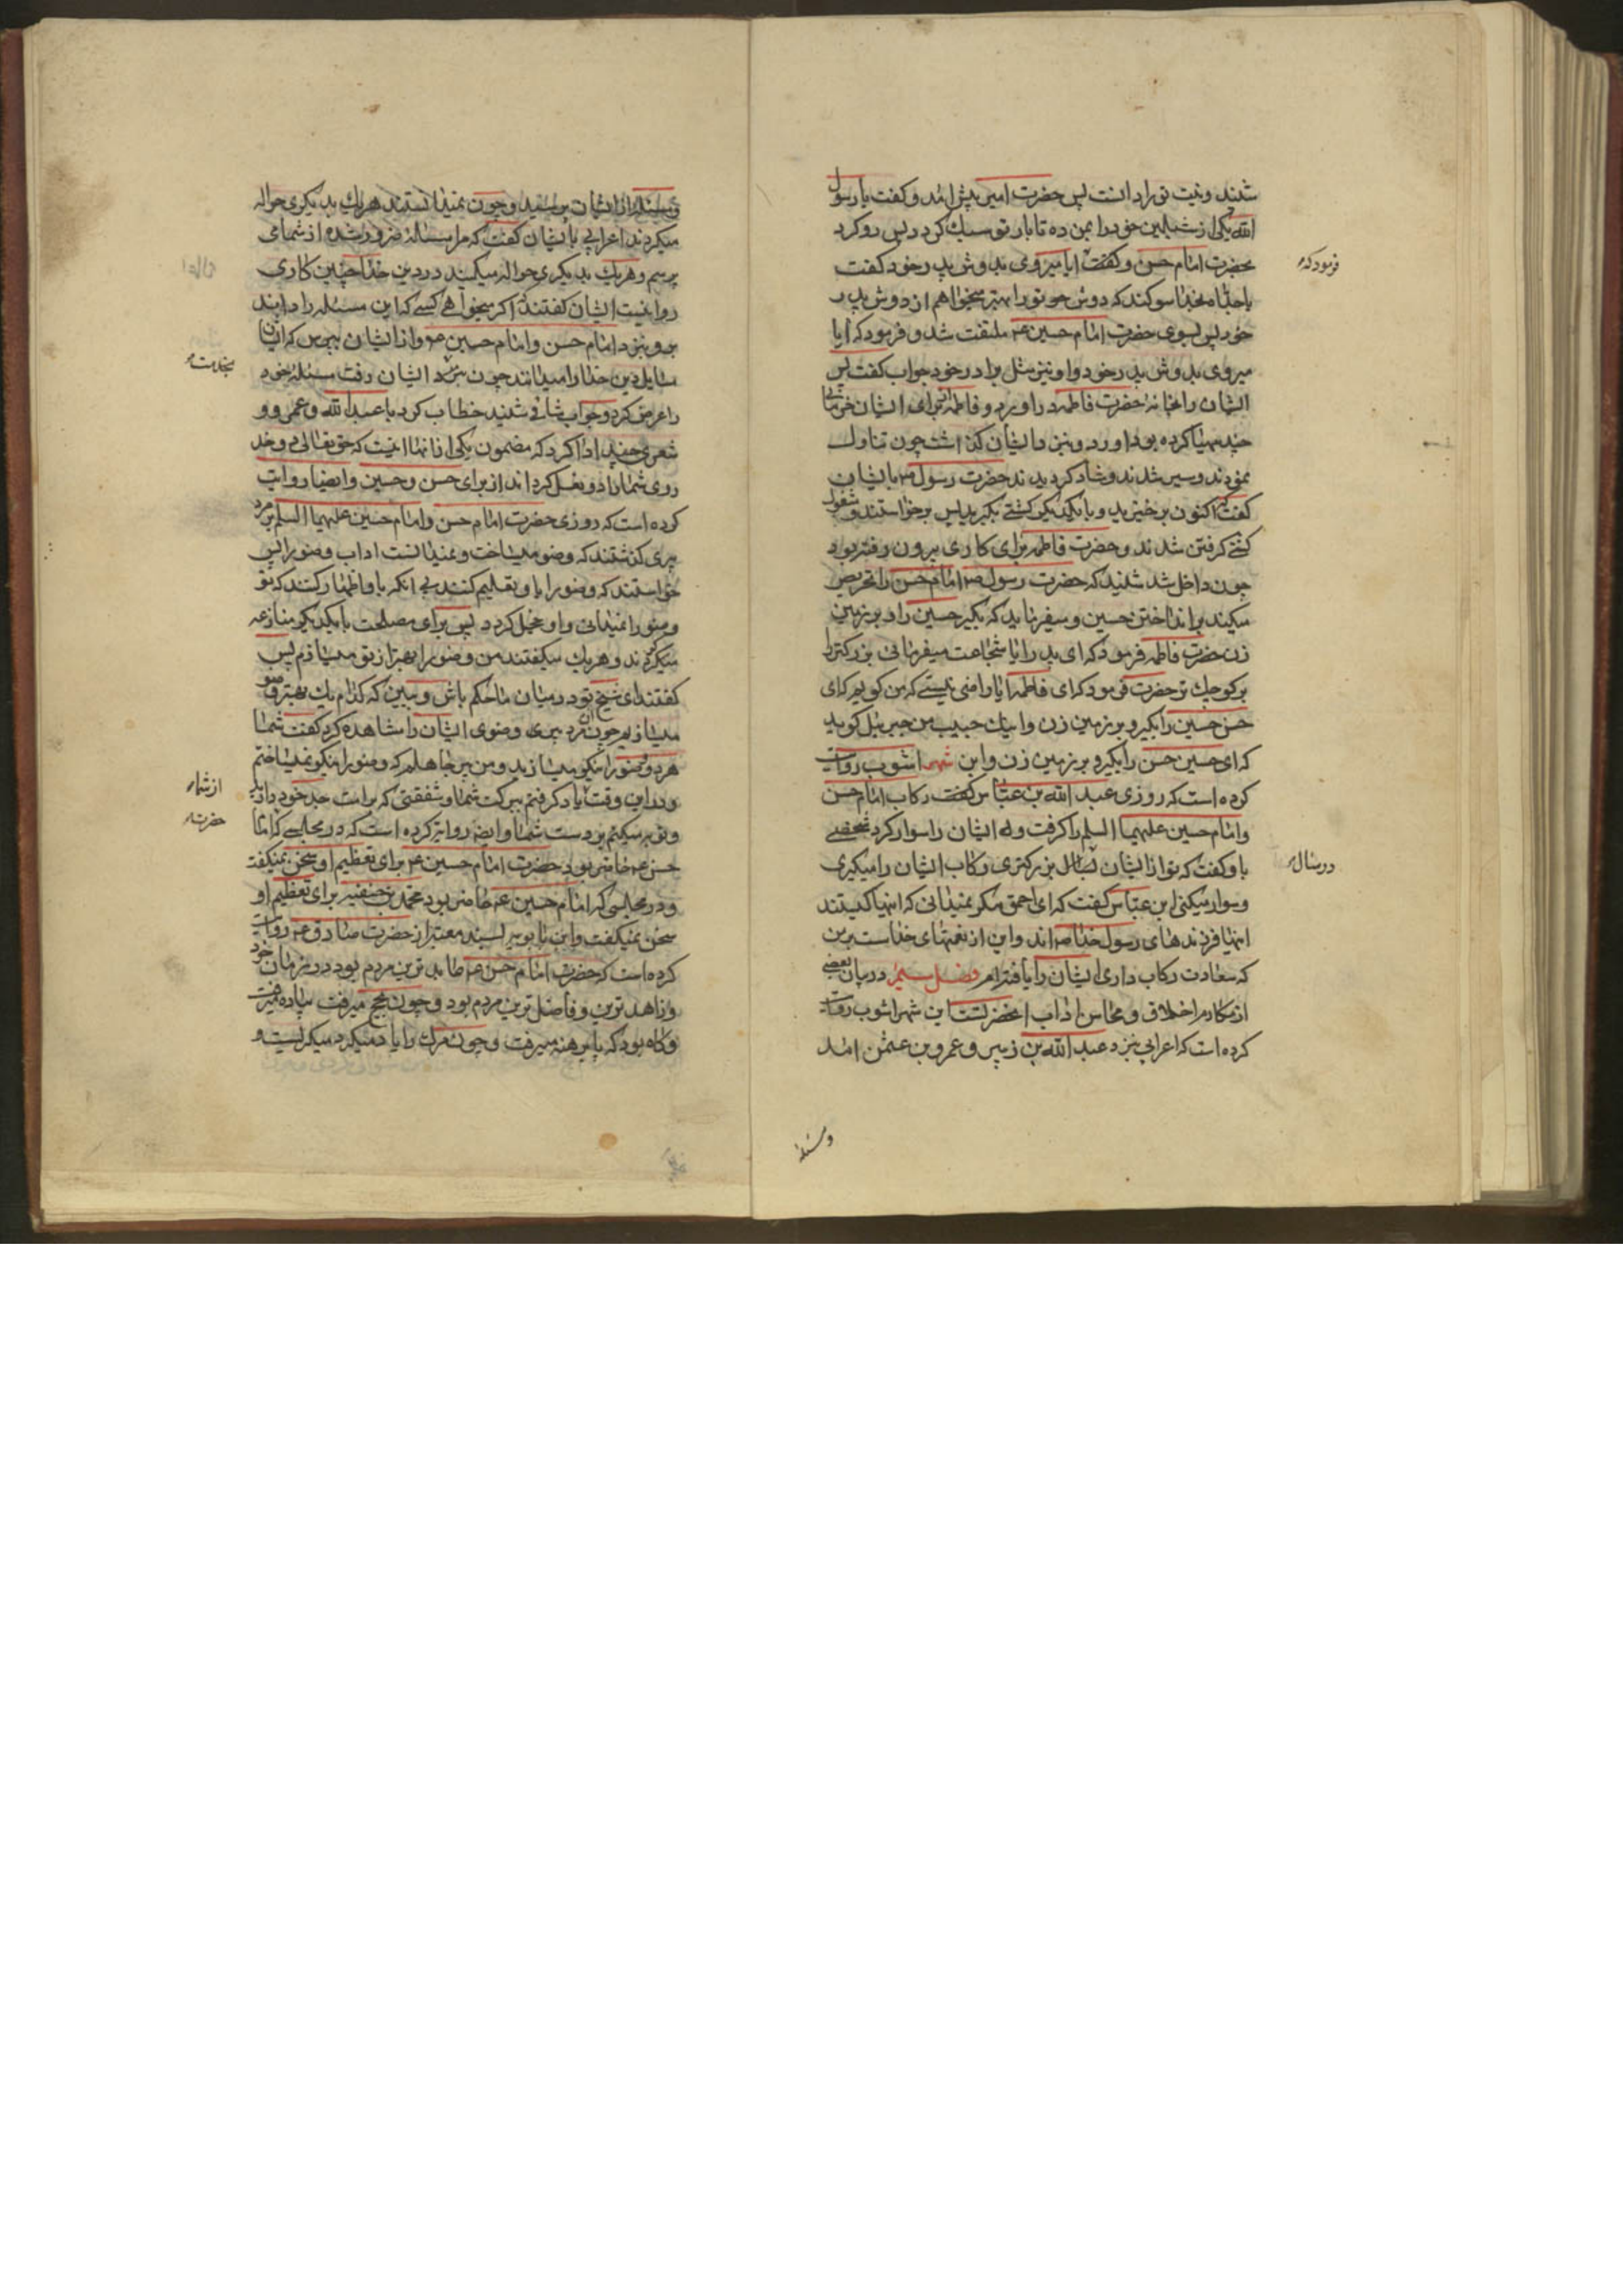 شدند و نیت تو را دانست پس حضرت امیر پیش آمد و گفت یا رسول
الله یکی از شبلین خود را بمن ده تا بار تو سبک گردد پس رو کرد
بحضرت امام حسن و گفت آیا میروی بدوش پدر خود گفت
یا جداه بخدا سوکند که دوش تو را بهتر میخواهم از دوش پدر
خود پس بسوی حضرت امام حسین ع ملتفت شد و فرمود که آیا
میروی بدوش پدر خود و او نیز مثل برادر خود جواب گفت پس
ایشان را بخانه حضرت فاطمه در آورد و فاطمه برای ایشان خرمائی
چند مهیا کرده بود آورد و نزد ایشان گذاشت چون تناول
نمودند و سیر شدند و شاد گردیدند حضرت رسول ص با ایشان
گفت که اکنون برخیزید و با یکدیگر کشتی بگیرید پس برخواستند و مشغول
کشتی گرفتن شدند و حضرت فاطمه برای کاری بیرون رفته بود
چون داخل شد شنید که حضرت رسول ص امام حسن را تحریص
میکند بر انداختن حسین و میفرماید که بگیر حسین را و بر زمین
زن حضرت فاطمه فرمود که ای پدر آیا شجاعت میفرمائی بزرگتر را
بر کوچک تر حضرت فرمود که ای فاطمه آیا راضی نیستی که من گویم که ای
حسن حسین را بگیر و بر زمین زن و اینک حبیب من جبرئیل گوید
که ای حسین حسن را بگیر و بر زمین زن و ابن شهر اشوب روایت
کرده است که روزی عبد الله بن عباس رکاب امام حسن
و امام حسین علیهما السلام را گرفت و ایشان را سوار کرد شخصی
باو گفت که تو از ایشان بسال بزرگتری و رکاب ایشان را میگیری
و سوار میکنی ابن عباس گفت که ای احمق مگر نمیدانی که اینها کیستند
اینها فرزندهای رسول خدا ص اند و این از نعمتهای خداست بر من
که سعادت رکاب داری ایشان را یافته ام فصل سیم در بیان بعضی
از مکارم اخلاق و محاسن آداب آنحضرتست ابن شهر اشوب روایت
کرده است که اعرابی نزد عبد الله بن زبیر و عمرو بن عثمن آمد
فرمود که
در سال
و مسئله
و مسئله از ایشان پرسید و چون نمیدانستند هر یک بدیگری حواله
میکردند اعرابی با ایشان گفت که مرا مسئله ضرور شده از شما می
پرسم و هر یک بدیگری حواله میکنید در دین خدا چنین کاری
روا نیست ایشان گفتند که اگر میخواهی کسی که این مسئله را داند
برو نزد امام حسن و امام حسین ع و از ایشان بپرس که ایشان
مسایل دین خدا را میدانند چون نزد ایشان رفت مسئله خود
را عرض کرد و جواب شافی شنید خطاب کرد با عبد الله و عمرو و
شعری چند ادا کرد که مضمون یکی از آنها اینست که حق تعالی دو خد
روی شما را دو نعل گرداند از برای حسن و حسین و ایضا روایت
کرده است که روزی حضرت امام حسن و امام حسین علیهما السلام بر مرد
پیری گذشتند که وضو میساخت و نمیدانست آداب وضو را پس
خواستند که وضو را باو تعلیم کنند بی آنکه باو اظهار کنند که تو
وضو را نمیدانی و او خجل گردد پس برای مصلحت با یکدیگر منازعه
میکردند و هر یک میگفتند من وضو را بهتر از تو میسازم پس
گفتند ای شیخ تو در میان ما حکم باش و ببین که کدام یک بهتر وضو
میسازیم چون آن مرد پیری وضوی ایشان را مشاهده کرد گفت شما
هر دو وضو را نیکو میسازید و من پیر جاهلم که وضو را نیکو نمیساختم
و در این وقت یاد گرفتم ببرکت شما و شفقتی که بر امت جد خود دارید
و توبه میکنم بر دست شما و ایضا روایة کرده است که در مجلسی که امام
حسن ع حاضر بود حضرت امام حسین ع برای تعظیم او سخن نمیگفت
و در مجلسی که امام حسین ع حاضر بود محمد بن حنفیه برای تعظیم او
سخن نمیگفت و ابن بابویه بسند معتبر از حضرت صادق ع روایت
کرده است که حضرت امام حسن ع عابد ترین مردم بود در زمان خود
و زاهد ترین و فاضل ترین مردم بود و چون بحج میرفت پیاده میرفت
و گاه بود که پا برهنه میرفت و چون مرگ را یاد میکرد میگریست و
بخدمت
از شما
حضرت